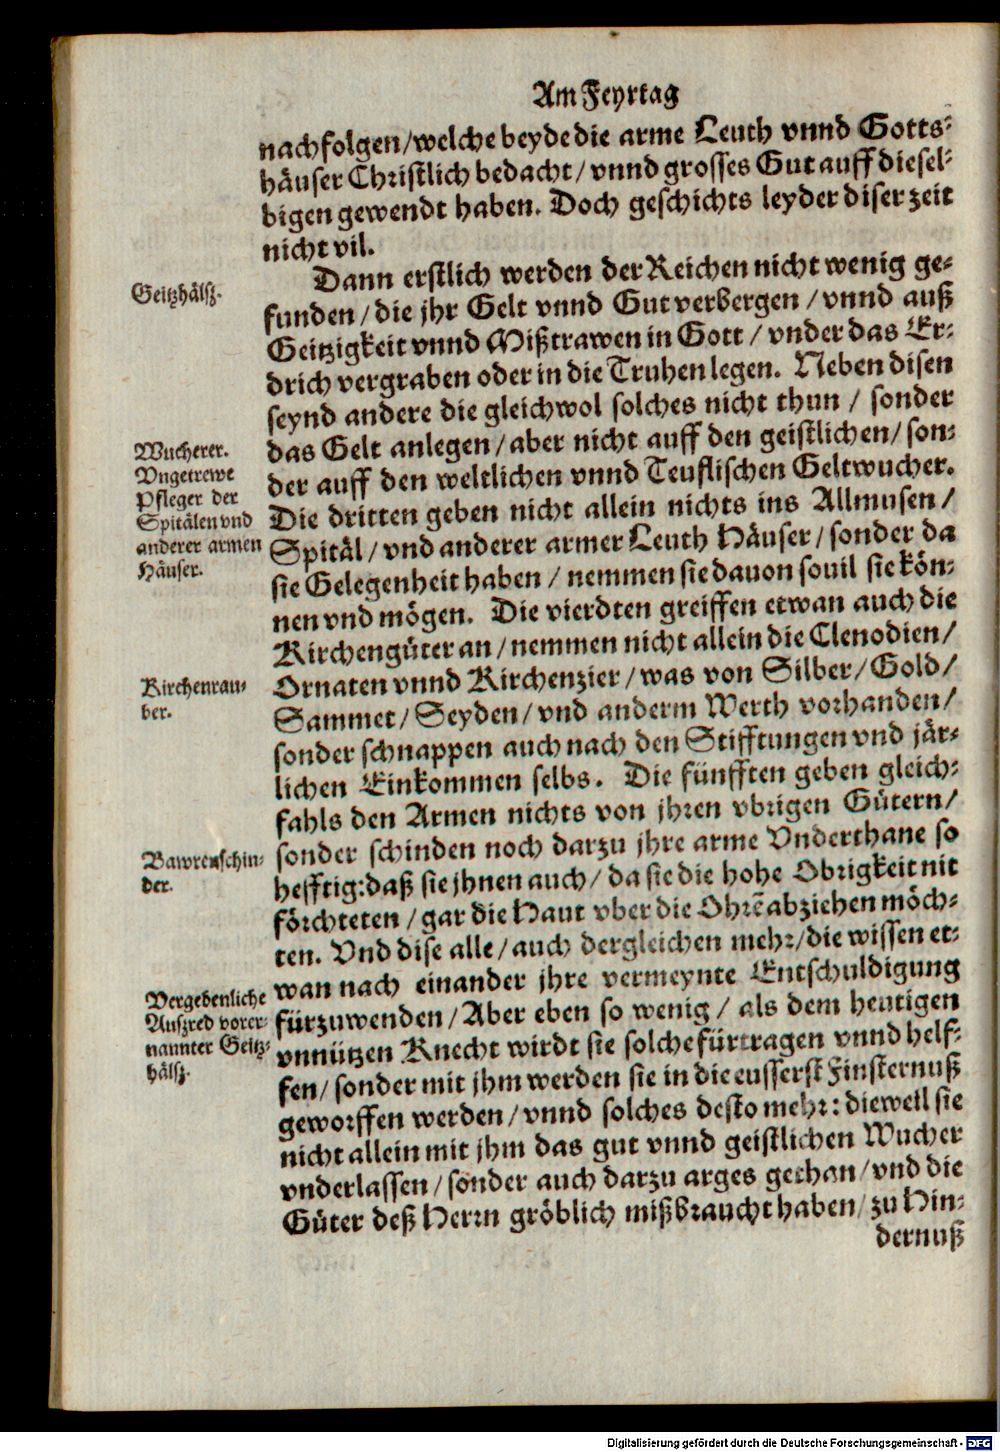 Am Feyrtag
nachfolgen/welche beyde die arme Leuth vnnd Gotts-
häuser Christlich bedacht/vnnd grosses Gut auff diesel-
bigen gewendt haben. Doch geschichts leyder diser zeit
nicht vil.
Geitzhälß.
Dann erstlich werden der Reichen nicht wenig ge-
funden/die jhr Gelt vnnd Gut verbergen/vnnd auß
Geitzigkeit vnnd Mißtrawen in Gott/vnder das Er-
drich vergraben oder in die Truhen legen. Neben disen
seynd andere die gleichwol solches nicht thun/sonder
Wucherer.
Vngetrewe
Pfleger der
Spitälen vnd
anderer armen
Häuser.
das Gelt anlegen/aber nicht auff den geistlichen/son-
der auff den weltlichen vnnd Teuflischen Geltwucher.
Die dritten geben nicht allein nichts ins Allmusen/
Spitäl/vnd anderer armer Leuth Häuser/sonder da
sie Gelegenheit haben/nemmen sie dauon souil sie kön-
nen vnd mögen. Die vierdten greiffen etwan auch die
Kirchengüter an/nemmen nicht allein die Clenodien/
Kirchenrau-
ber.
Ornaten vnnd Kirchenzier/was von Silber/Gold/
Sammet/Seyden/vnd anderm Werth vorhanden/
sonder schnappen auch nach den Stifftungen vnd jär-
lichen Einkommen selbs. Die fünfften geben gleich-
fahls den Armen nichts von jhren vbrigen Gütern/
Bawrenschin-
der.
sonder schinden noch darzu jhre arme Vnderthane so
hefftig: daß sie jhnen auch/da sie die hohe Obrigkeit nit
förchteten/gar die Haut vber die Ohrē abziehen möch-
ten. Vnd dise alle/auch dergleichen mehr/die wissen et-
Vergebenliche
Außred vorer-
nannter Geitz-
hälß.
wan nach einander jhre vermeynte Entschuldigung
fürzuwenden/Aber eben so wenig/als dem heutigen
vnnützen Knecht wirdt sie solche fürtragen vnnd helf-
fen/sonder mit jhm werden sie in die eusserst Finsternuß
geworffen werden/vnnd solches desto mehr: dieweil sie
nicht allein mit jhm das gut vnnd geistlichen Wucher
vnderlassen/sonder auch darzu arges gethan/vnd die
Güter deß Herrn gröblich mißbraucht haben/zu Hin-
dernuß
Digitalisierung gefördert durch die Deutsche Forschungsgemeinschaft - DFG